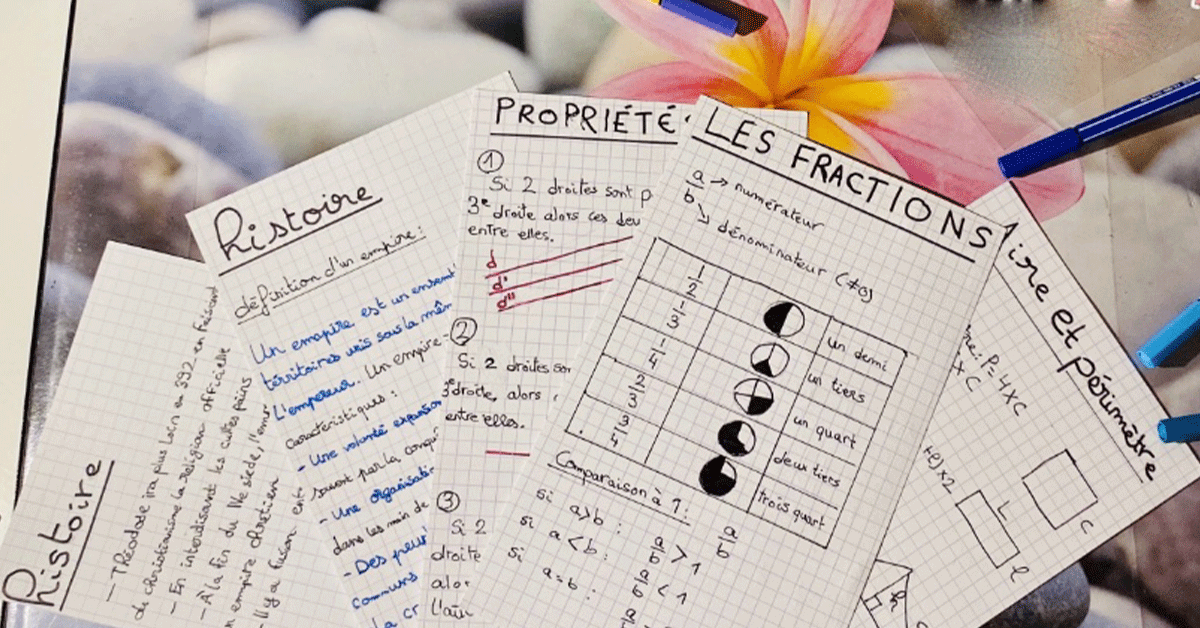 histoire
– Théodase ira plus loin en 392 en faisant
du christianisme la religion officielle
– En interdisant les cultes païens
– À la fin du IVe siècle, l'emp
n empire chrétien
– Il y a fusion ent
histoire
définition d'un empire :
Un emopire est un ensem
térritoires unis sous la mêm
L'empereur. Un empire
caractéristiques :
– Une volonté expansion
suivant par la conqu
– Une organisati
dans les main de
– Des peu
communs
la cr
PROPRIÉTÉ
1
Si 2 droites sont p
3e droite alors ces deu
entre elles.
d
d'
d''
2
Si 2 droites sor
3e droite, alors
entre elles.
3
Si 2
droite
alor
l'au
LES FRACTIONS
a/b → numérateur
↘ dénominateur (≠0)
1/2 un demi
1/3 un tiers
1/4 un quart
2/3 deux tiers
3/4 trois quart
Comparaison à 1 :
si a>b : a/b > 1 a/b
si a<b : a/b < 1
si a=b : a
Aire et périmètre
re: P=4×C
×C
+l)×2
C
L
l
h